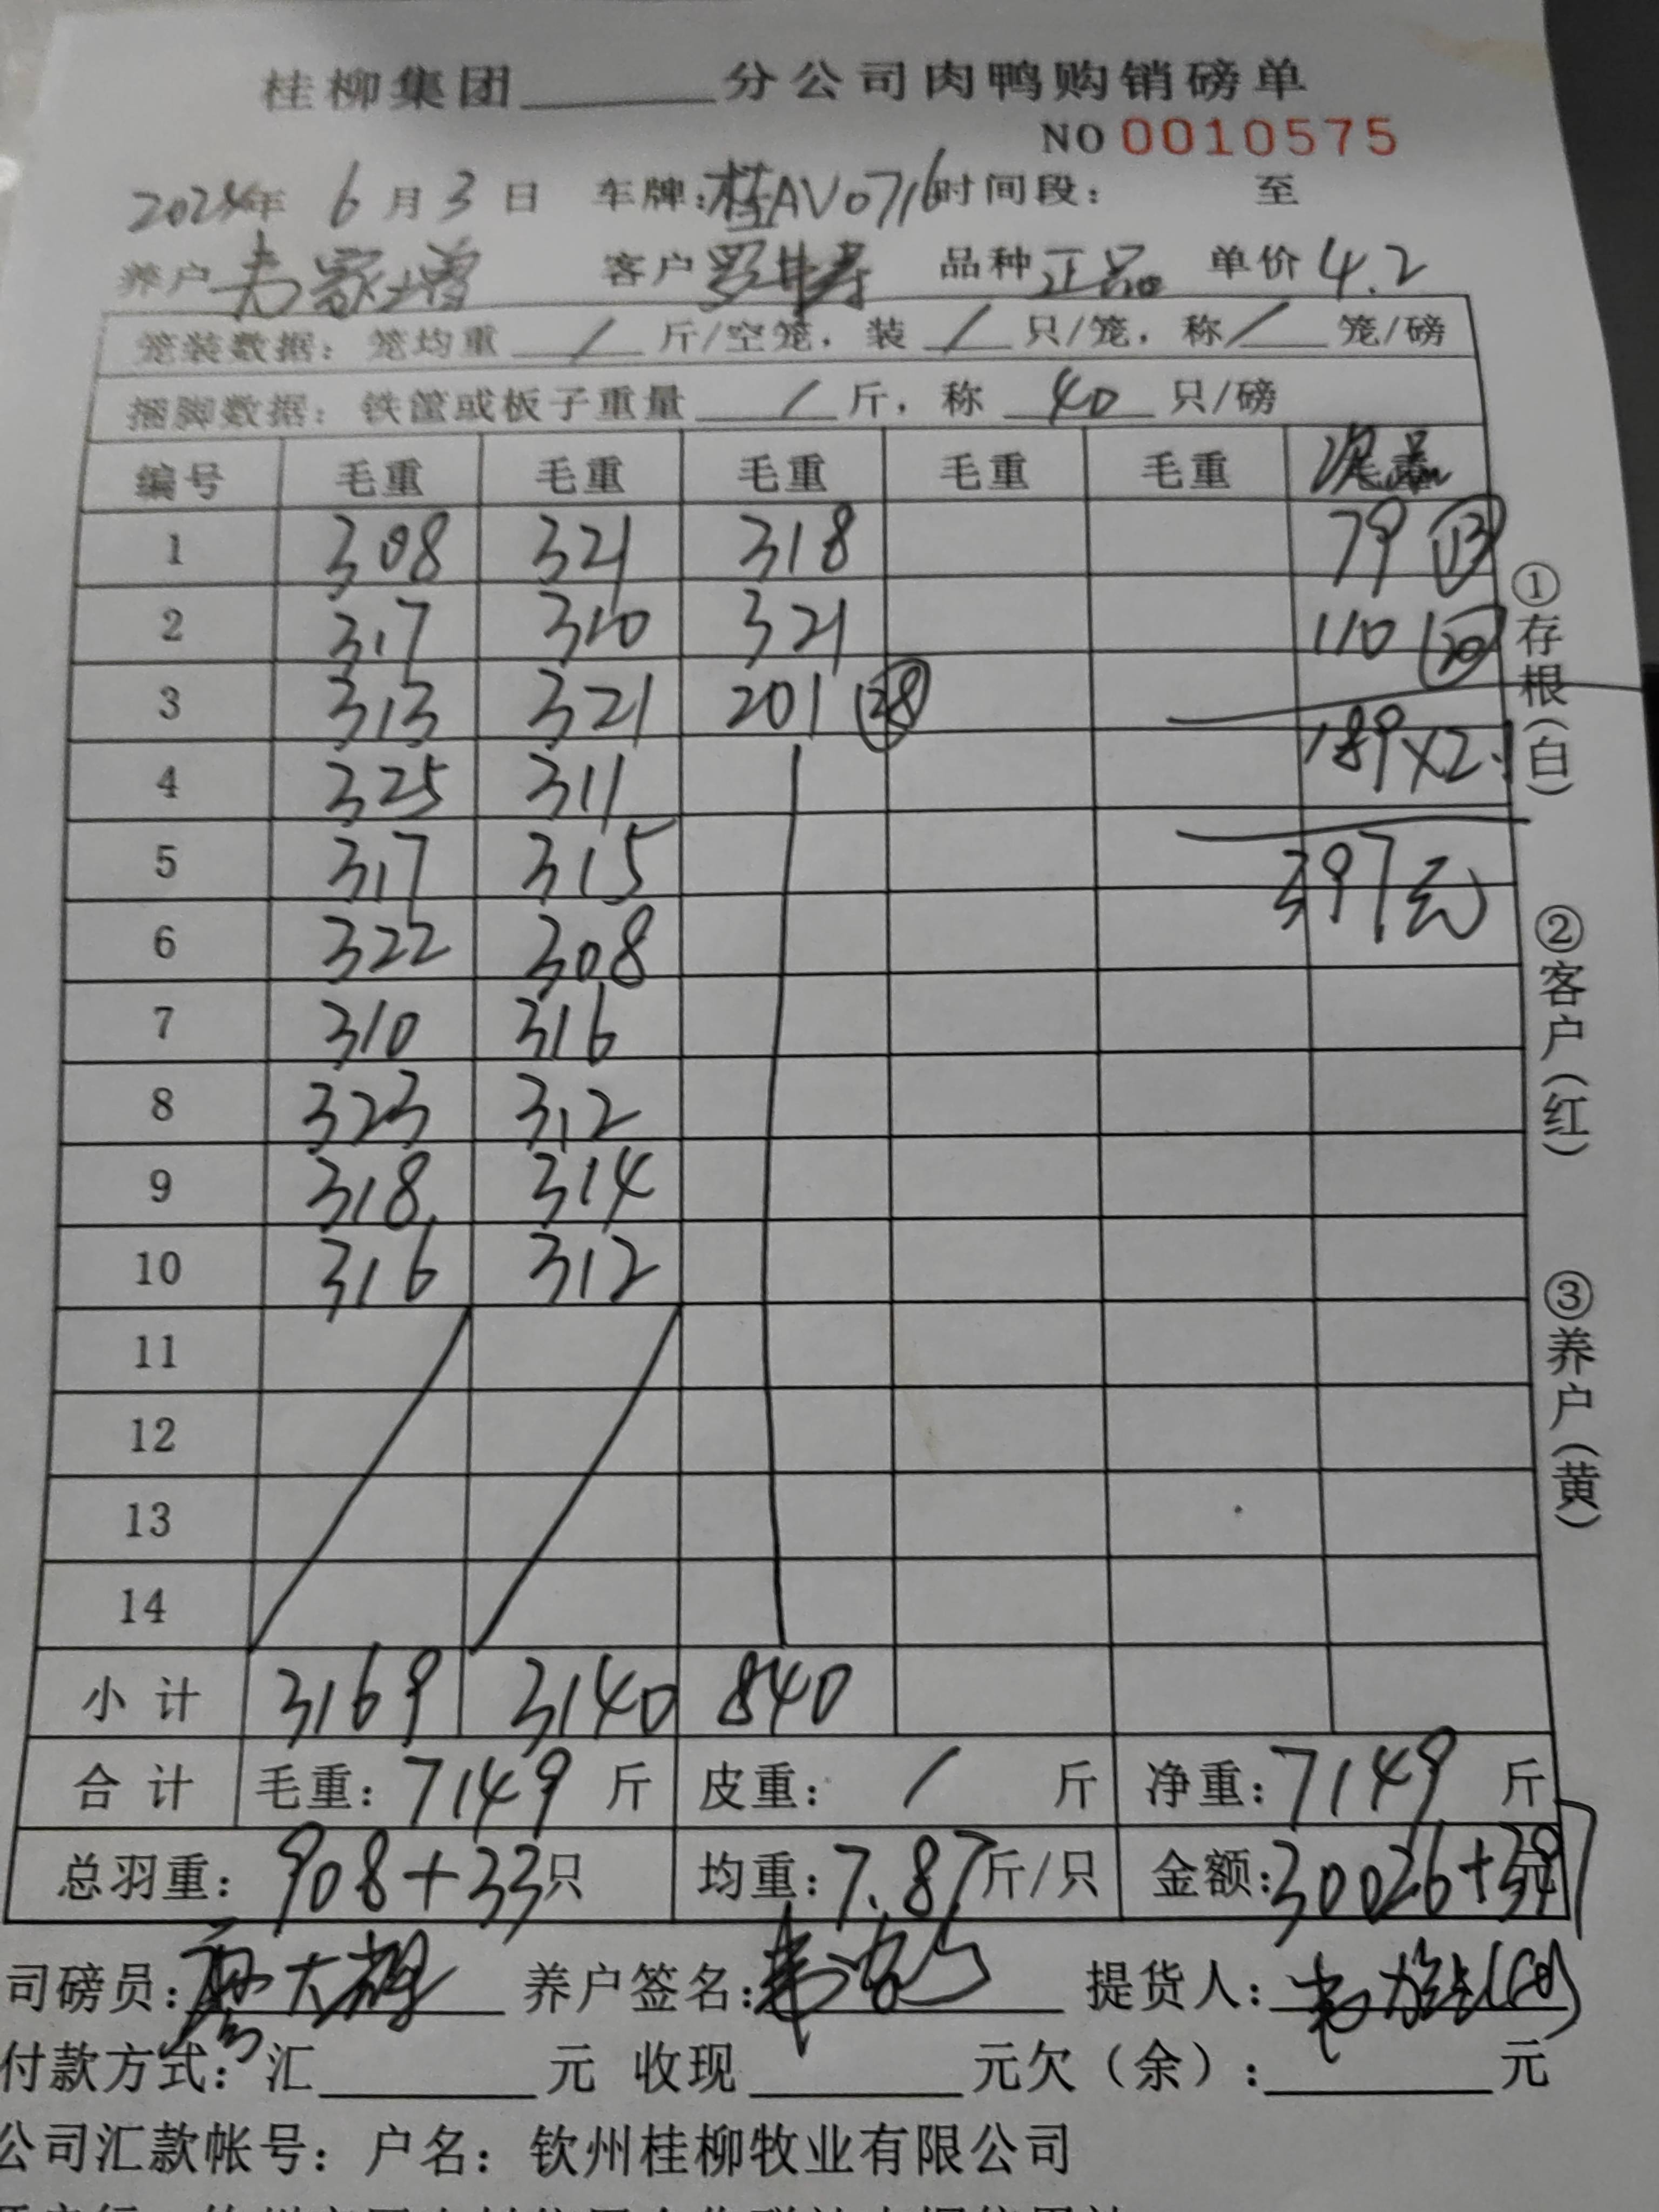 桂柳集团______分公司肉鸭购销磅单
NO 0010575
2024年 6月3日 车牌:桂AV0716 时间段: 至
养户 客户 品种 正品 单价 4.2
笼装数据: 笼均重 / 斤/空笼, 装 / 只/笼, 称 / 笼/磅
捆脚数据: 铁筐或板子重量 / 斤, 称 40 只/磅
编号 毛重 毛重 毛重 毛重 毛重 次品
1 308 321 318 79 ⑬
2 317 310 321 110 ⑳
3 313 321 201 (28)
4 325 311 189×2.1
5 317 315 397元
6 322 308
7 310 316
8 323 312
9 318 314
10 316 312
11
12
13
14
小计 3169 3140 840
合计 毛重: 7149 斤 皮重: / 斤 净重: 7149 斤
总羽重: 908+33只 均重: 7.87斤/只 金额: 30026+
司磅员: 养户签名: 提货人:
付款方式: 汇______元 收现______元欠(余):______元
公司汇款帐号: 户名: 钦州桂柳牧业有限公司
①存根(白) ②客户(红) ③养户(黄)